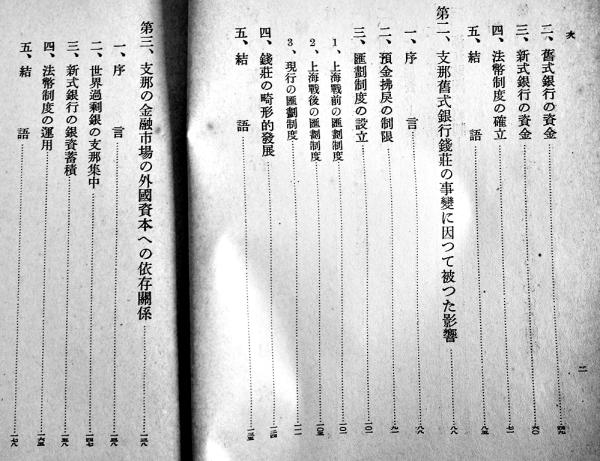 次
二
二、舊式銀行の資金……四九
三、新式銀行の資金……六〇
四、法幣制度の確立……七一
五、結 語……八五
第二、支那舊式銀行錢莊の事變に因つて被つた影響……八八
一、序 言……八八
二、預金拂戾の制限……九一
三、匯劃制度の設立……一〇一
1、上海戰前の匯劃制度……一〇一
2、上海戰後の匯劃制度……一〇五
3、現行の匯劃制度……一一一
四、錢莊の畸形的發展……一二四
五、結 語……一三五
第三、支那の金融市場の外國資本への依存關係……一三八
一、序 言……一三八
二、世界過剩銀の支那集中……一四七
三、新式銀行の銀資蓄積……一五八
四、法幣制度の運用……一六五
五、結 語……一七九